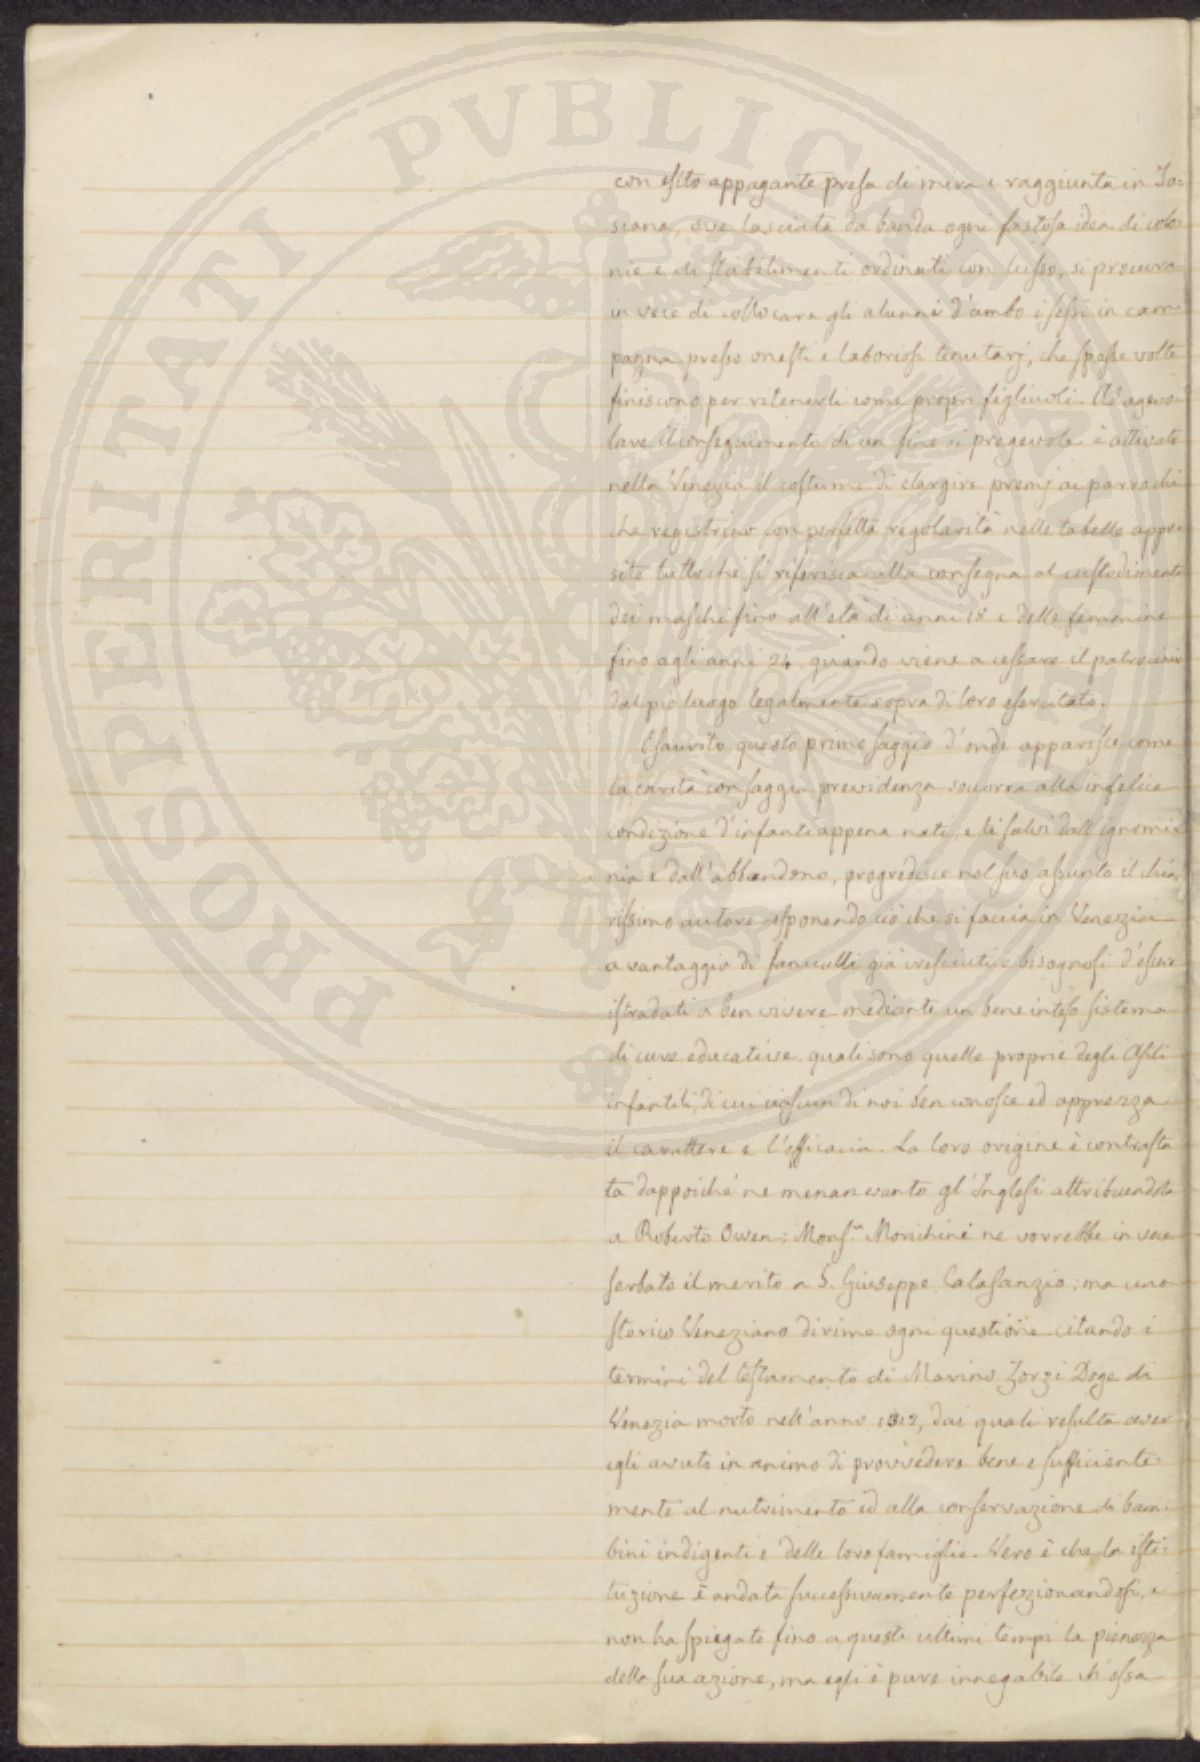 PROSPERITATI PVBLICAE AVGENDAE
con esito appagante presa di mira e raggiunta in To-
scana, ove lasciata da banda ogni fastosa idea di colo-
nie e di stabilimenti ordinati con lusso, si procura
in vece di collocare gli alunni d'ambo i sessi in cam-
pagna presso onesti e laboriosi tenutarj, che spesse volte
finiscono per ritenerli come propri figliuoli. Ad agevo-
lare il conseguimento di un fine sì pregevole è attivato
nella Venezia il costume di elargire premj ai parrochi
che registrino con perfetta regolarità nelle tabelle appo-
site tutto che si riferisca alla consegna al custodimento
dei maschi fino all'età di anni 18 e delle femmine
fino agli anni 24 quando viene a cessare il patrocinio
dal pio luogo legalmente sopra di loro esercitato.
Esaurito questo primo saggio d'onde apparisce come
la carità con saggia previdenza soccorra alla infelice
condizione d'infanti appena nati, e li salvi dall'ignomi-
nia e dall'abbandono, progredisce nel suo assunto il chia-
rissimo autore esponendo ciò che si faccia in Venezia
a vantaggio di fanciulli già cresciuti e bisognosi d'essere
istradati a ben vivere mediante un bene inteso sistema
di cure educative quali sono quelle proprie degli Asili
infantili, di cui ciascun di noi ben conosce ed apprezza
il carattere e l'efficacia. La loro origine è contrasta
ta dappoichè ne menan vanto gl'Inglesi attribuendola
a Roberto Owen; Monsr. Morichini ne vorrebbe in vece
serbato il merito a S. Giuseppe Calasanzio; ma uno
storico Veneziano dirime ogni questione citando i
termini del testamento di Marino Zorzi Doge di
Venezia morto nell'anno 1312, dai quali resulta aver
egli avuto in animo di provvedere bene e sufficiente-
mente al nutrimento ed alla conservazione di bam-
bini indigenti e delle loro famiglie. Vero è che la isti-
tuzione è andata successivamente perfezionandosi, e
non ha spiegato fino a questi ultimi tempi la pienezza
della sua azione, ma egli è pure innegabile ch'essa